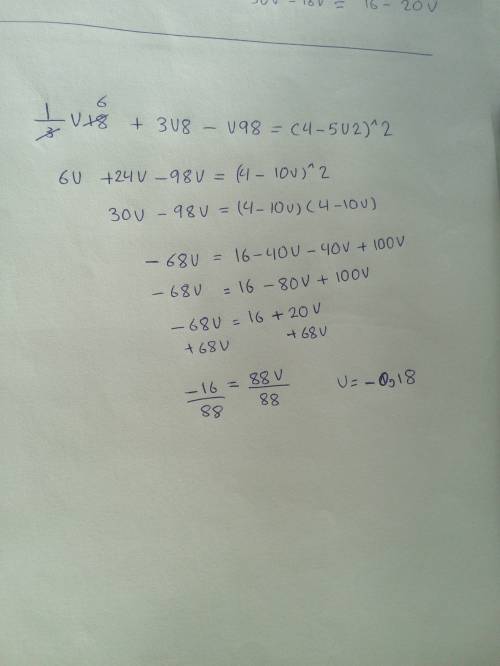 30V - 18V = 16 - 20V
6
1/3 V18 + 3V8 - V98 = (4-5V2)^2
6V +24V - 98V = (4 - 10V)^2
30V - 98V = (4-10V)(4-10V)
-68V = 16-40V - 40V + 100V
-68V = 16 - 80V + 100V
-68V = 16 + 20V
+68V +68V
-16/88 = 88V/88 V= -0,18